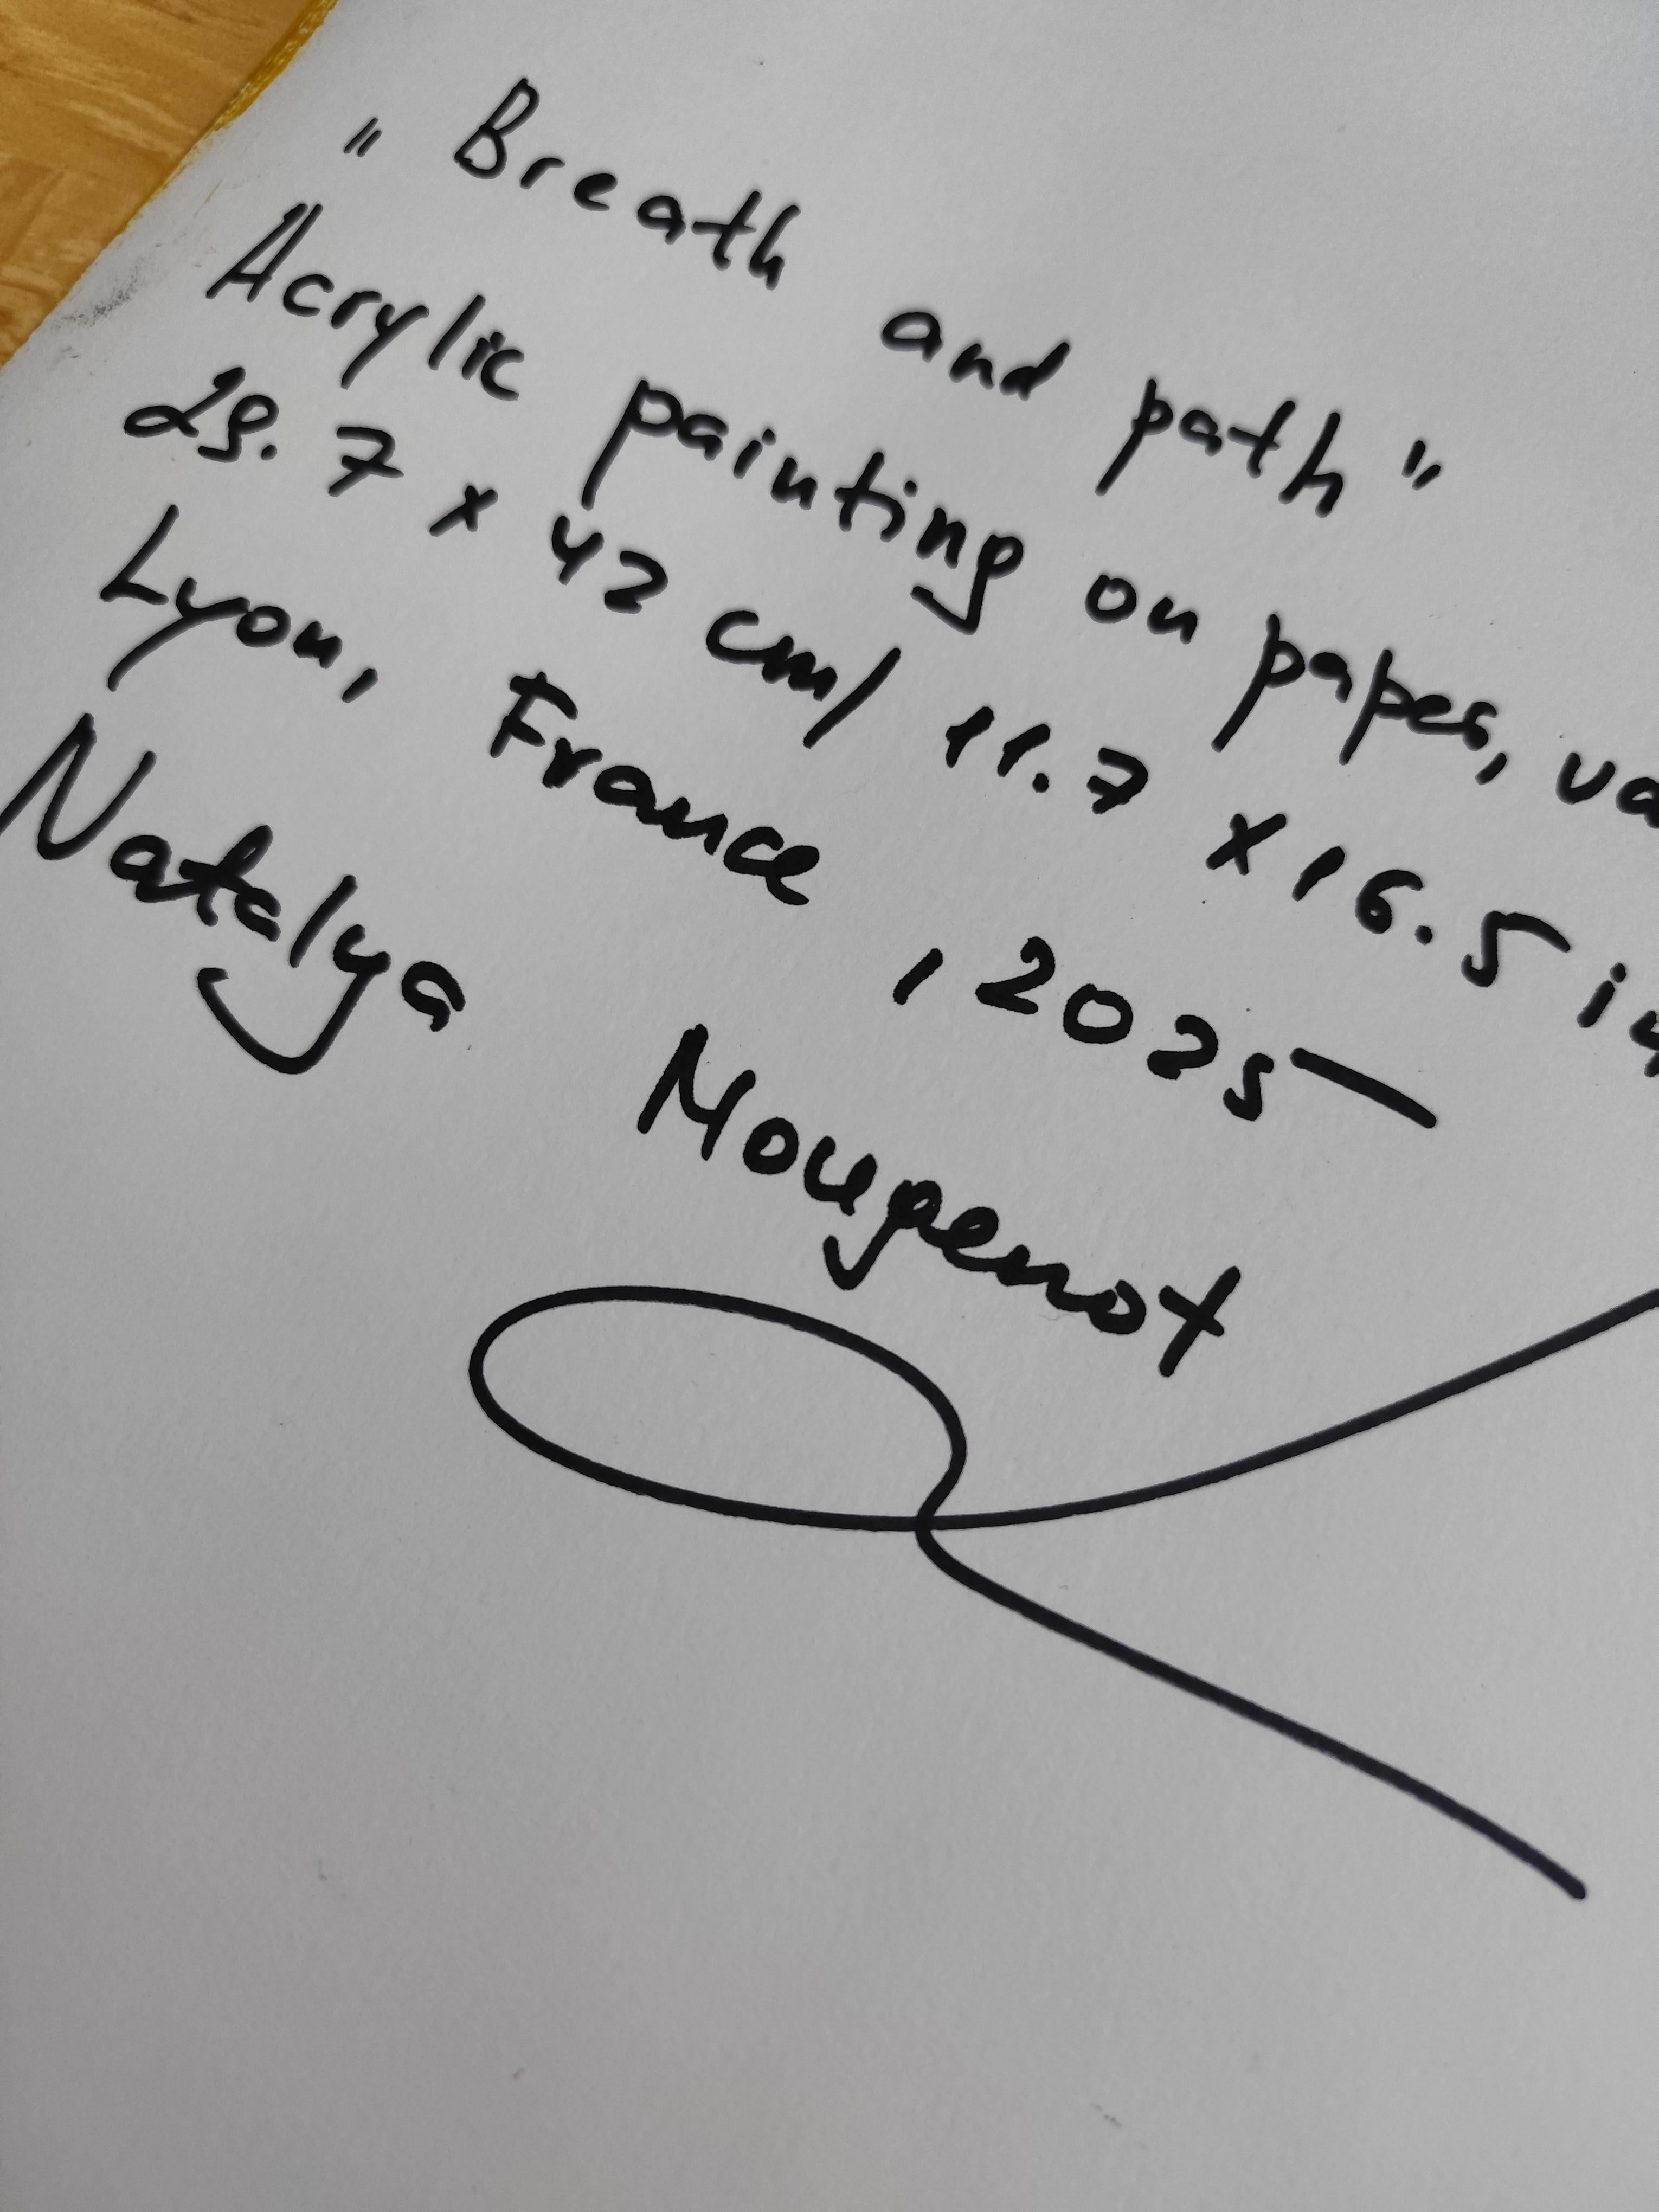 "Breath and path"
Acrylic painting on paper, va
29.7 x 42 cm/ 11.7 x 16.5 in
Lyon, France, 2025
Natalya Mougenot